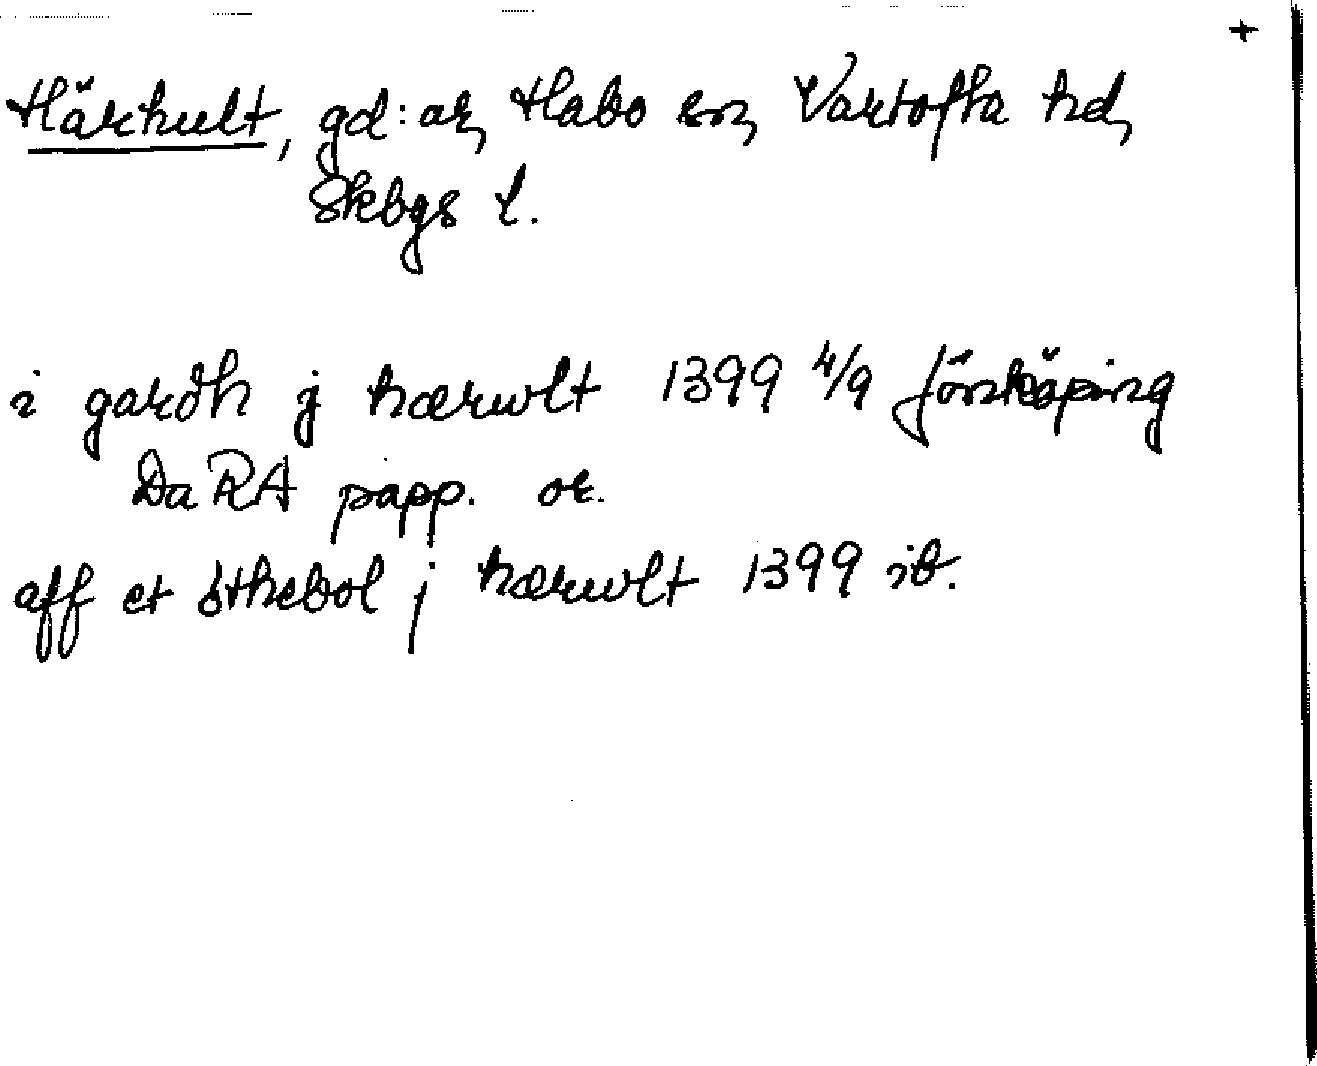 +
Härkult, gd:ar, Habo sn, Vartofta hd,
Skbgs l.
i gardh j hærwlt 1399 4/9 Jönköping
DaRA papp. or.
aff et öthebol j hærwlt 1399 ib.